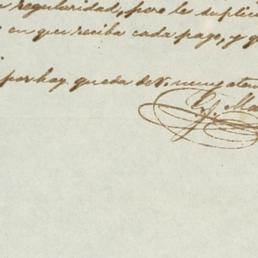 regularidad, pero le suplico
en que reciba cada pago, y q
por hoy queda de V. muy aten